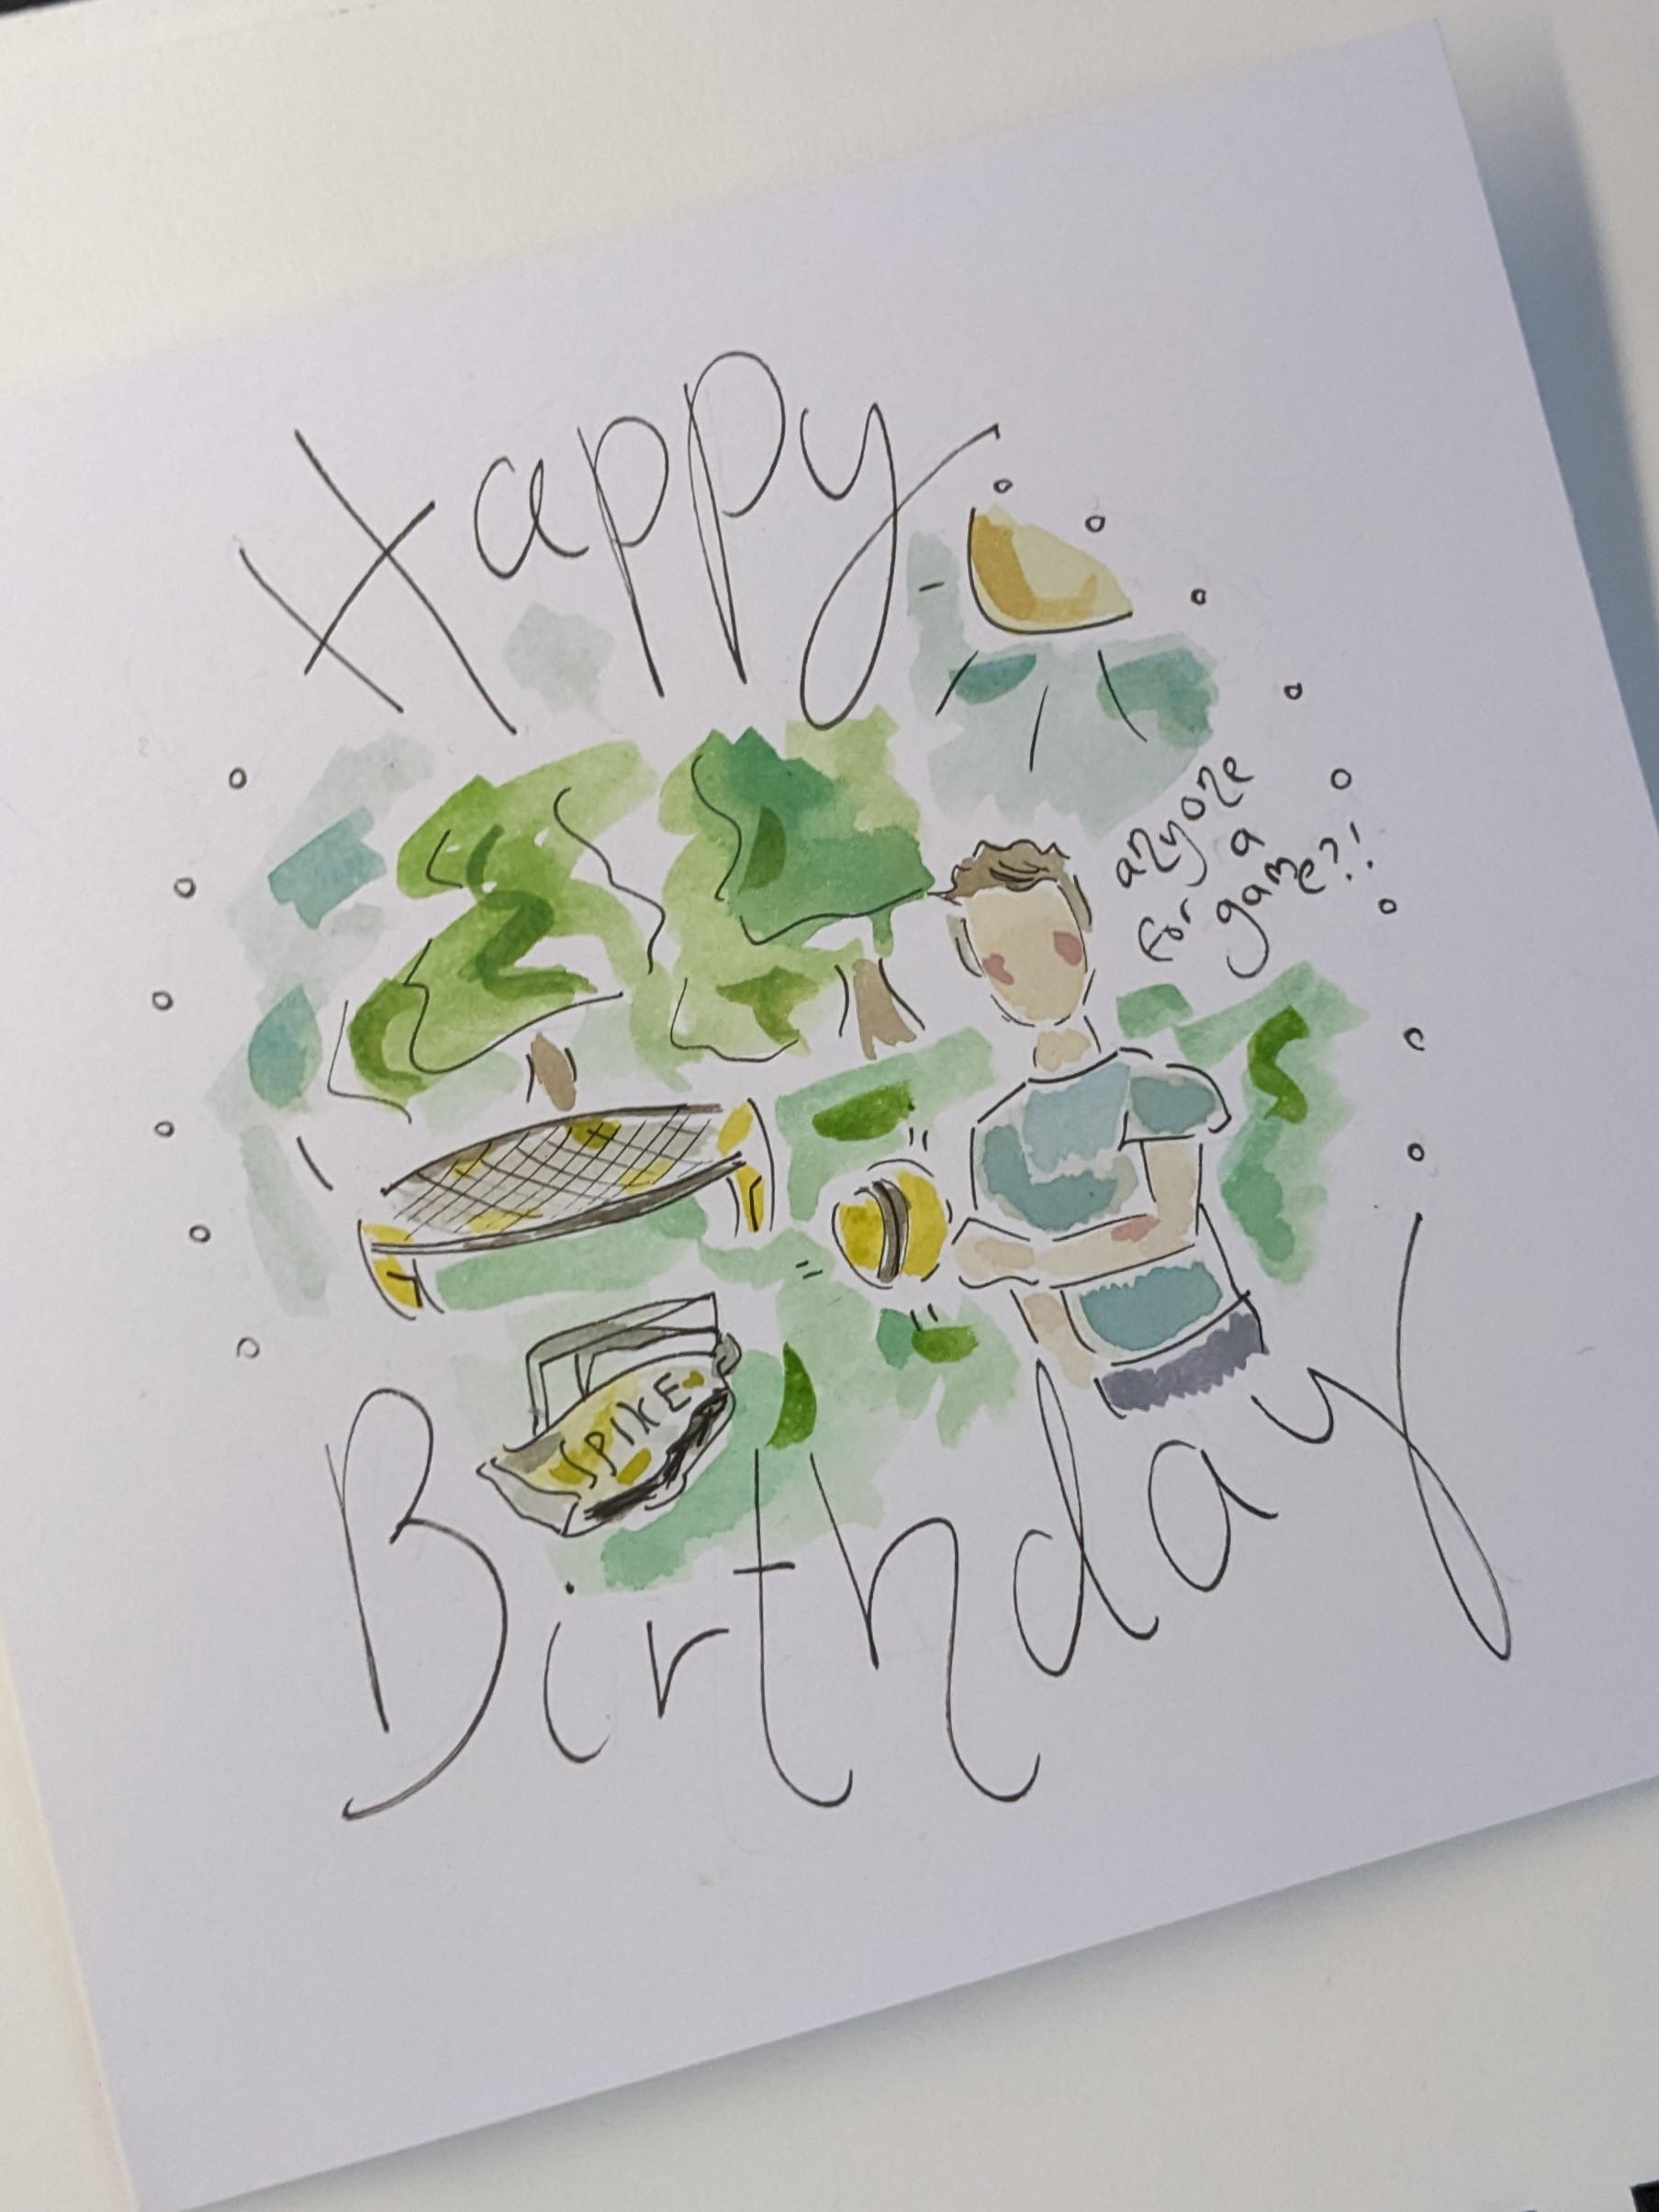 Happy
anyone
for a
game?!
SPIKE
Birthday